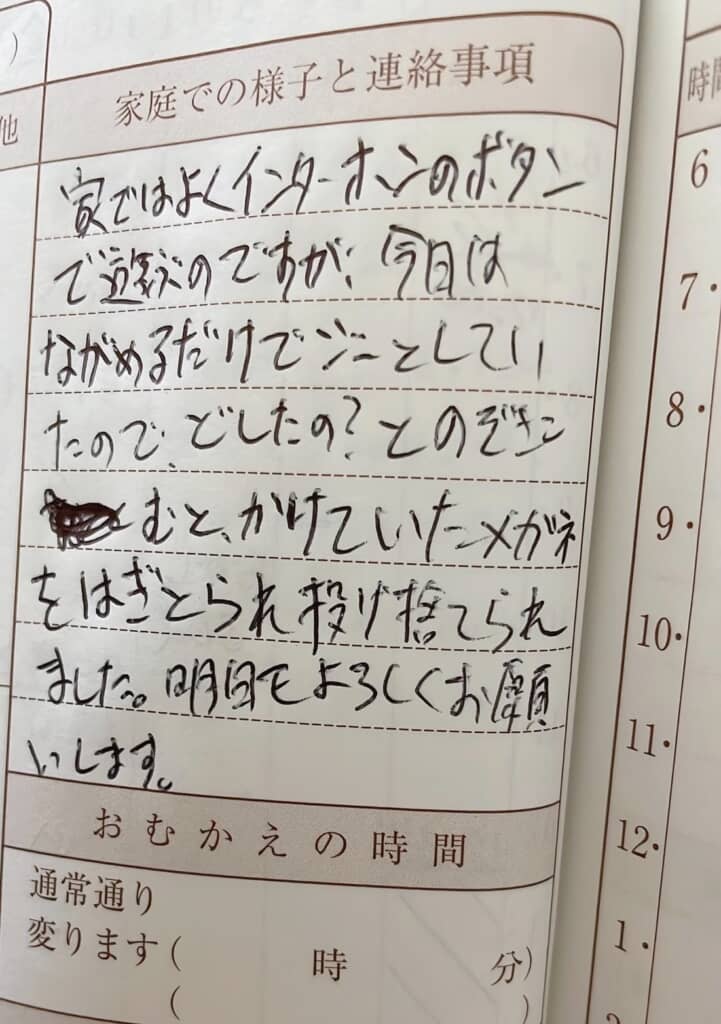 )
他
家庭での様子と連絡事項
家ではよくインターホンのボタン
で遊ぶのですが、今日は
ながめるだけでジーとしてい
たので、どしたの?とのぞきこ
むと、かけていたメガネ
をはぎとられ投げ捨てられ
ました。明日もよろしくお願
いします。
おむかえの時間
通常通り
変ります( 時 分)
( )
時間
6
7・
8・
9・
10・
11・
12・
1・